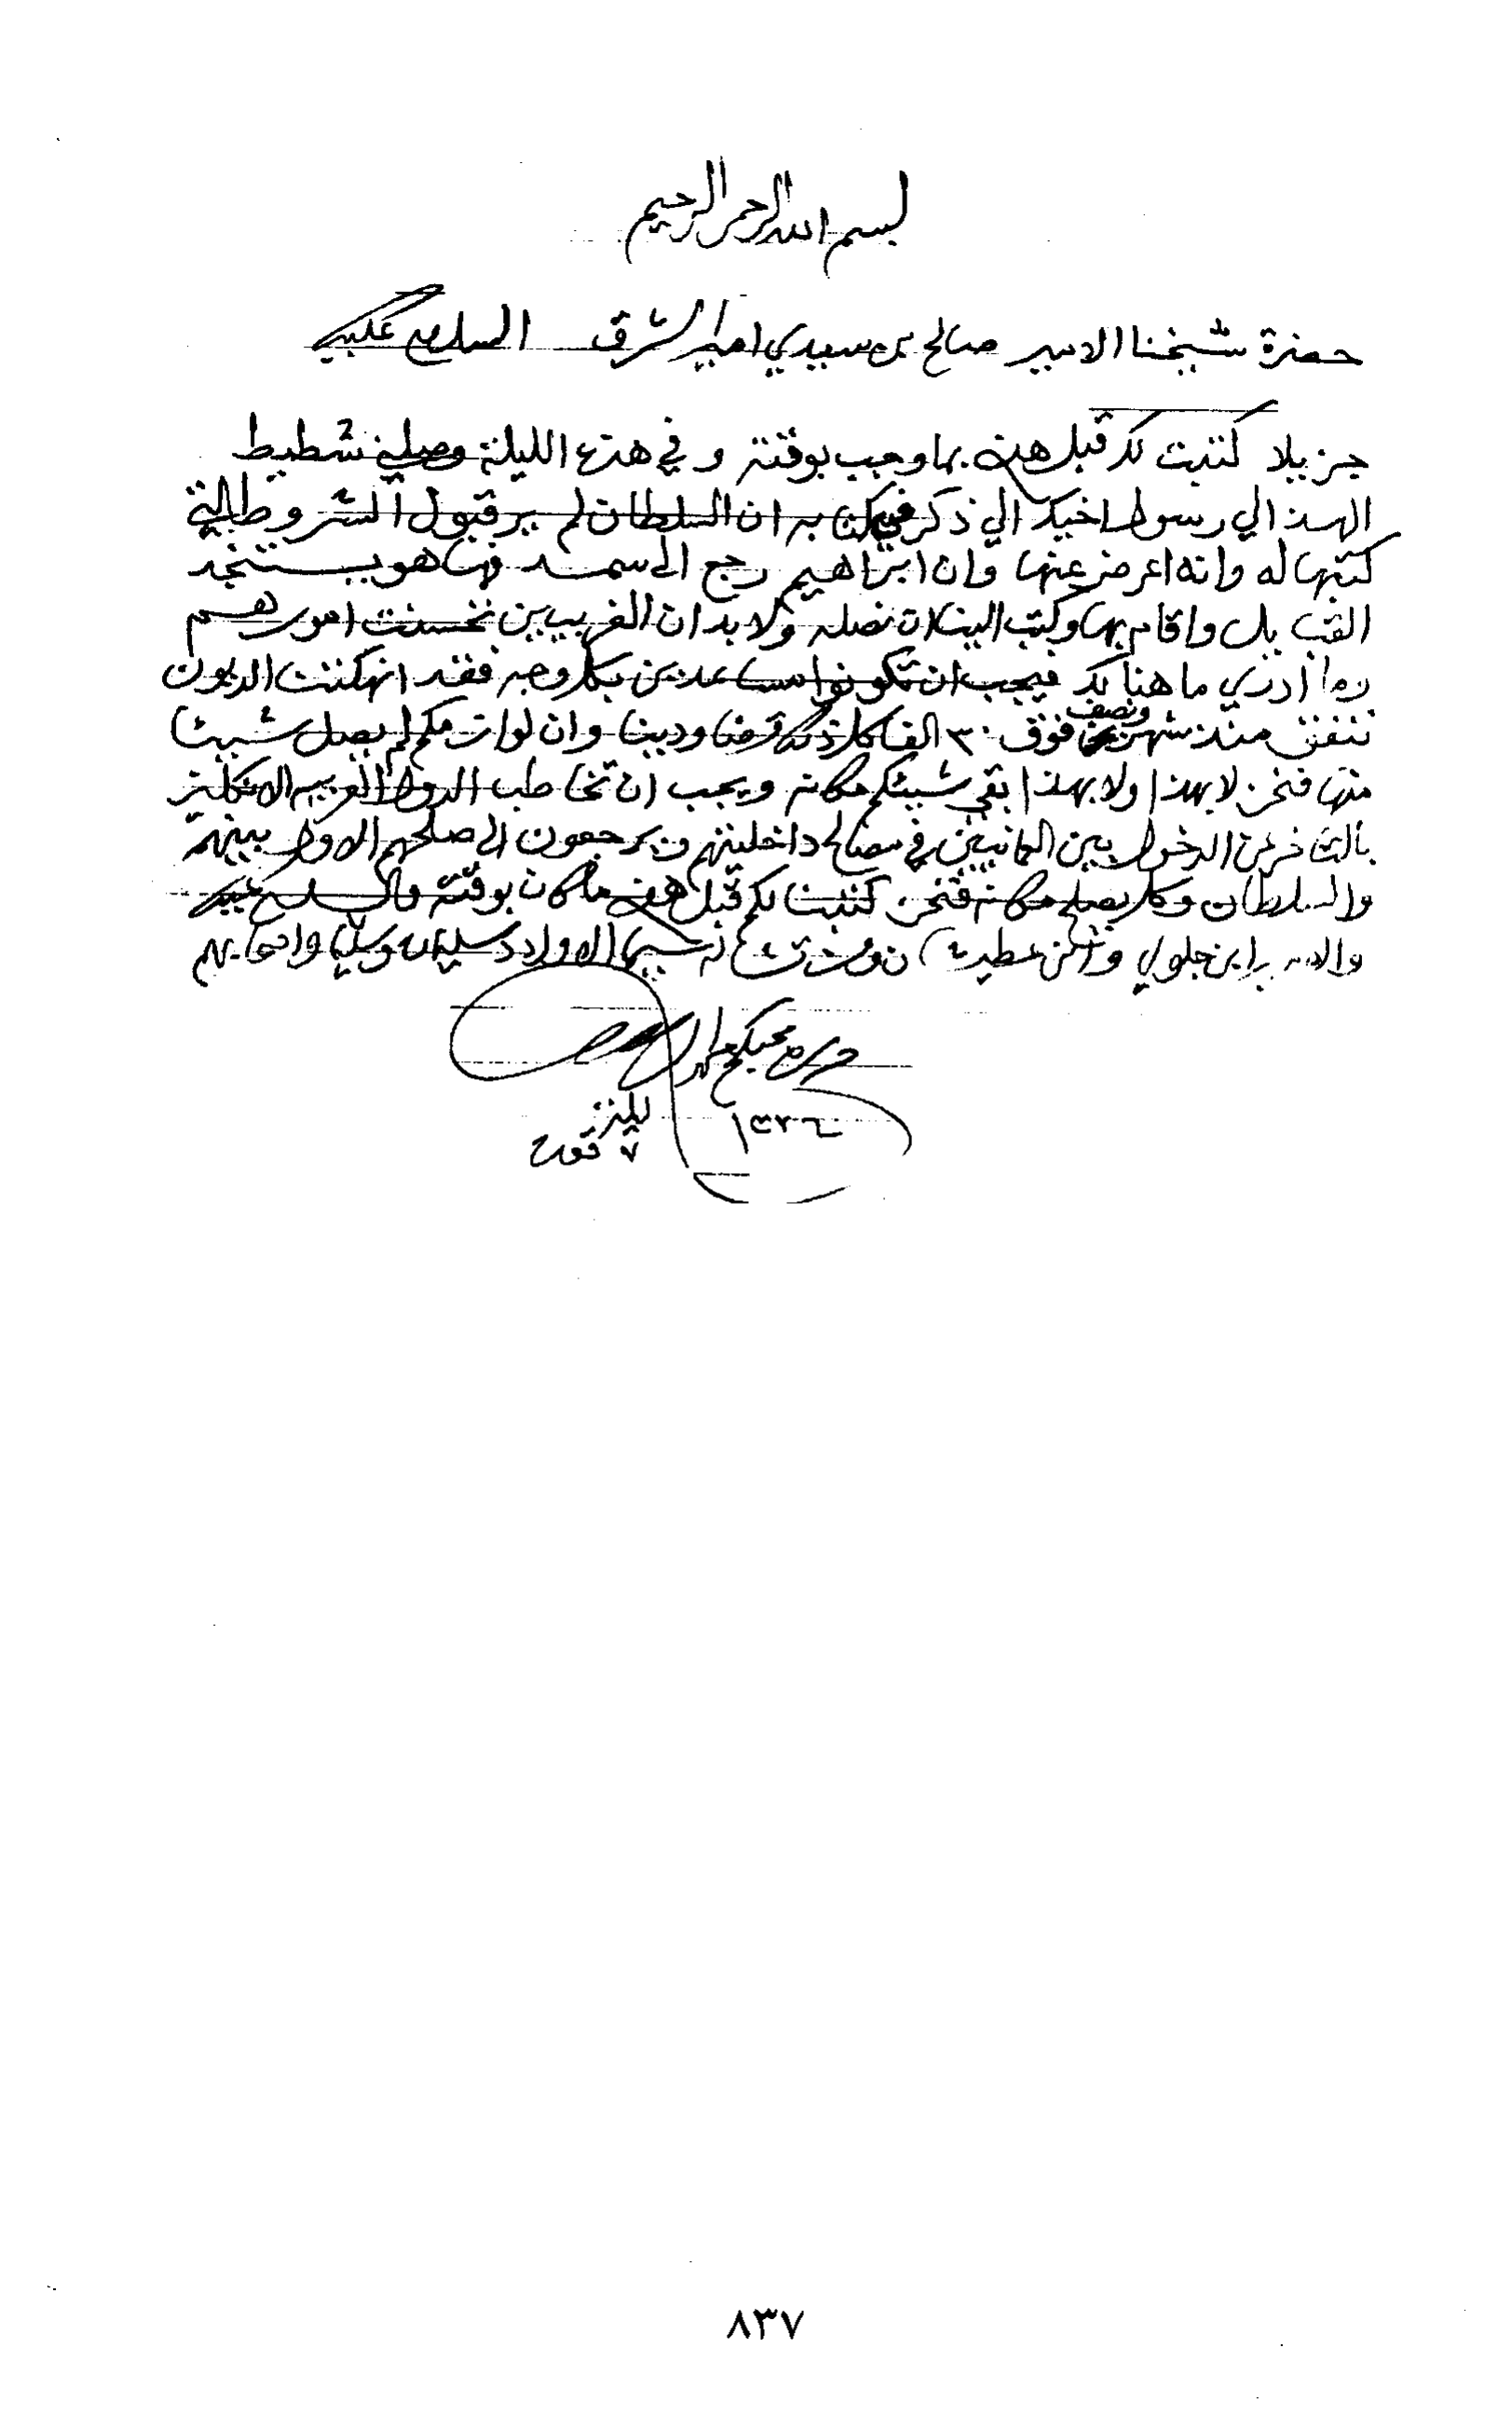 بسم الله الرحمن الرحيم
حضرة شيخنا الامير صالح بن سيدي امير الشرق السلام عليك
جزيلا كتبت لك قبل هذه بما وجب بوقته وفي هذه الليلة وصلني شطيط
الي رسول اخيك الي ذكر في كتابه ان السلطان لم ير قبول الشروط التي
كتبها له وانه اعرض عنها وان ابراهيم رجع الى سمد فها هو يستنجد
القبايل واقام بها وكتب الينا ان نصله ولا بد ان الغربيين تحسنت امورهم
وما أدري ما هنالك فيجب ان تكونوا مساعدين بكل وجه فقد انهكتنا الديون
ننفق منذ شهرين ونصف فوق ٣٠ الفا كل ذلك قرضا ودينا وان لوازمكم لم يصل شيئا
منها فنحن لا بهذا ولا بهذا بقي شيئكم مكانه ويجب ان تخاطب الدول العربيه الانكليز
بالتأخر عن الدخول بين العمانيين في مصالح داخليتهم ويرجعون الى صلحهم الاول بينهم
والسلطان وكل يصلح مكانه فنحن كتبنا لكم قبل هذه ما كان بوقته والسلام عليك
والاولاد سليمان واخوانهم
من محبكم
١٣٧٦
ليلة
٧ قعدة
٨٣٧